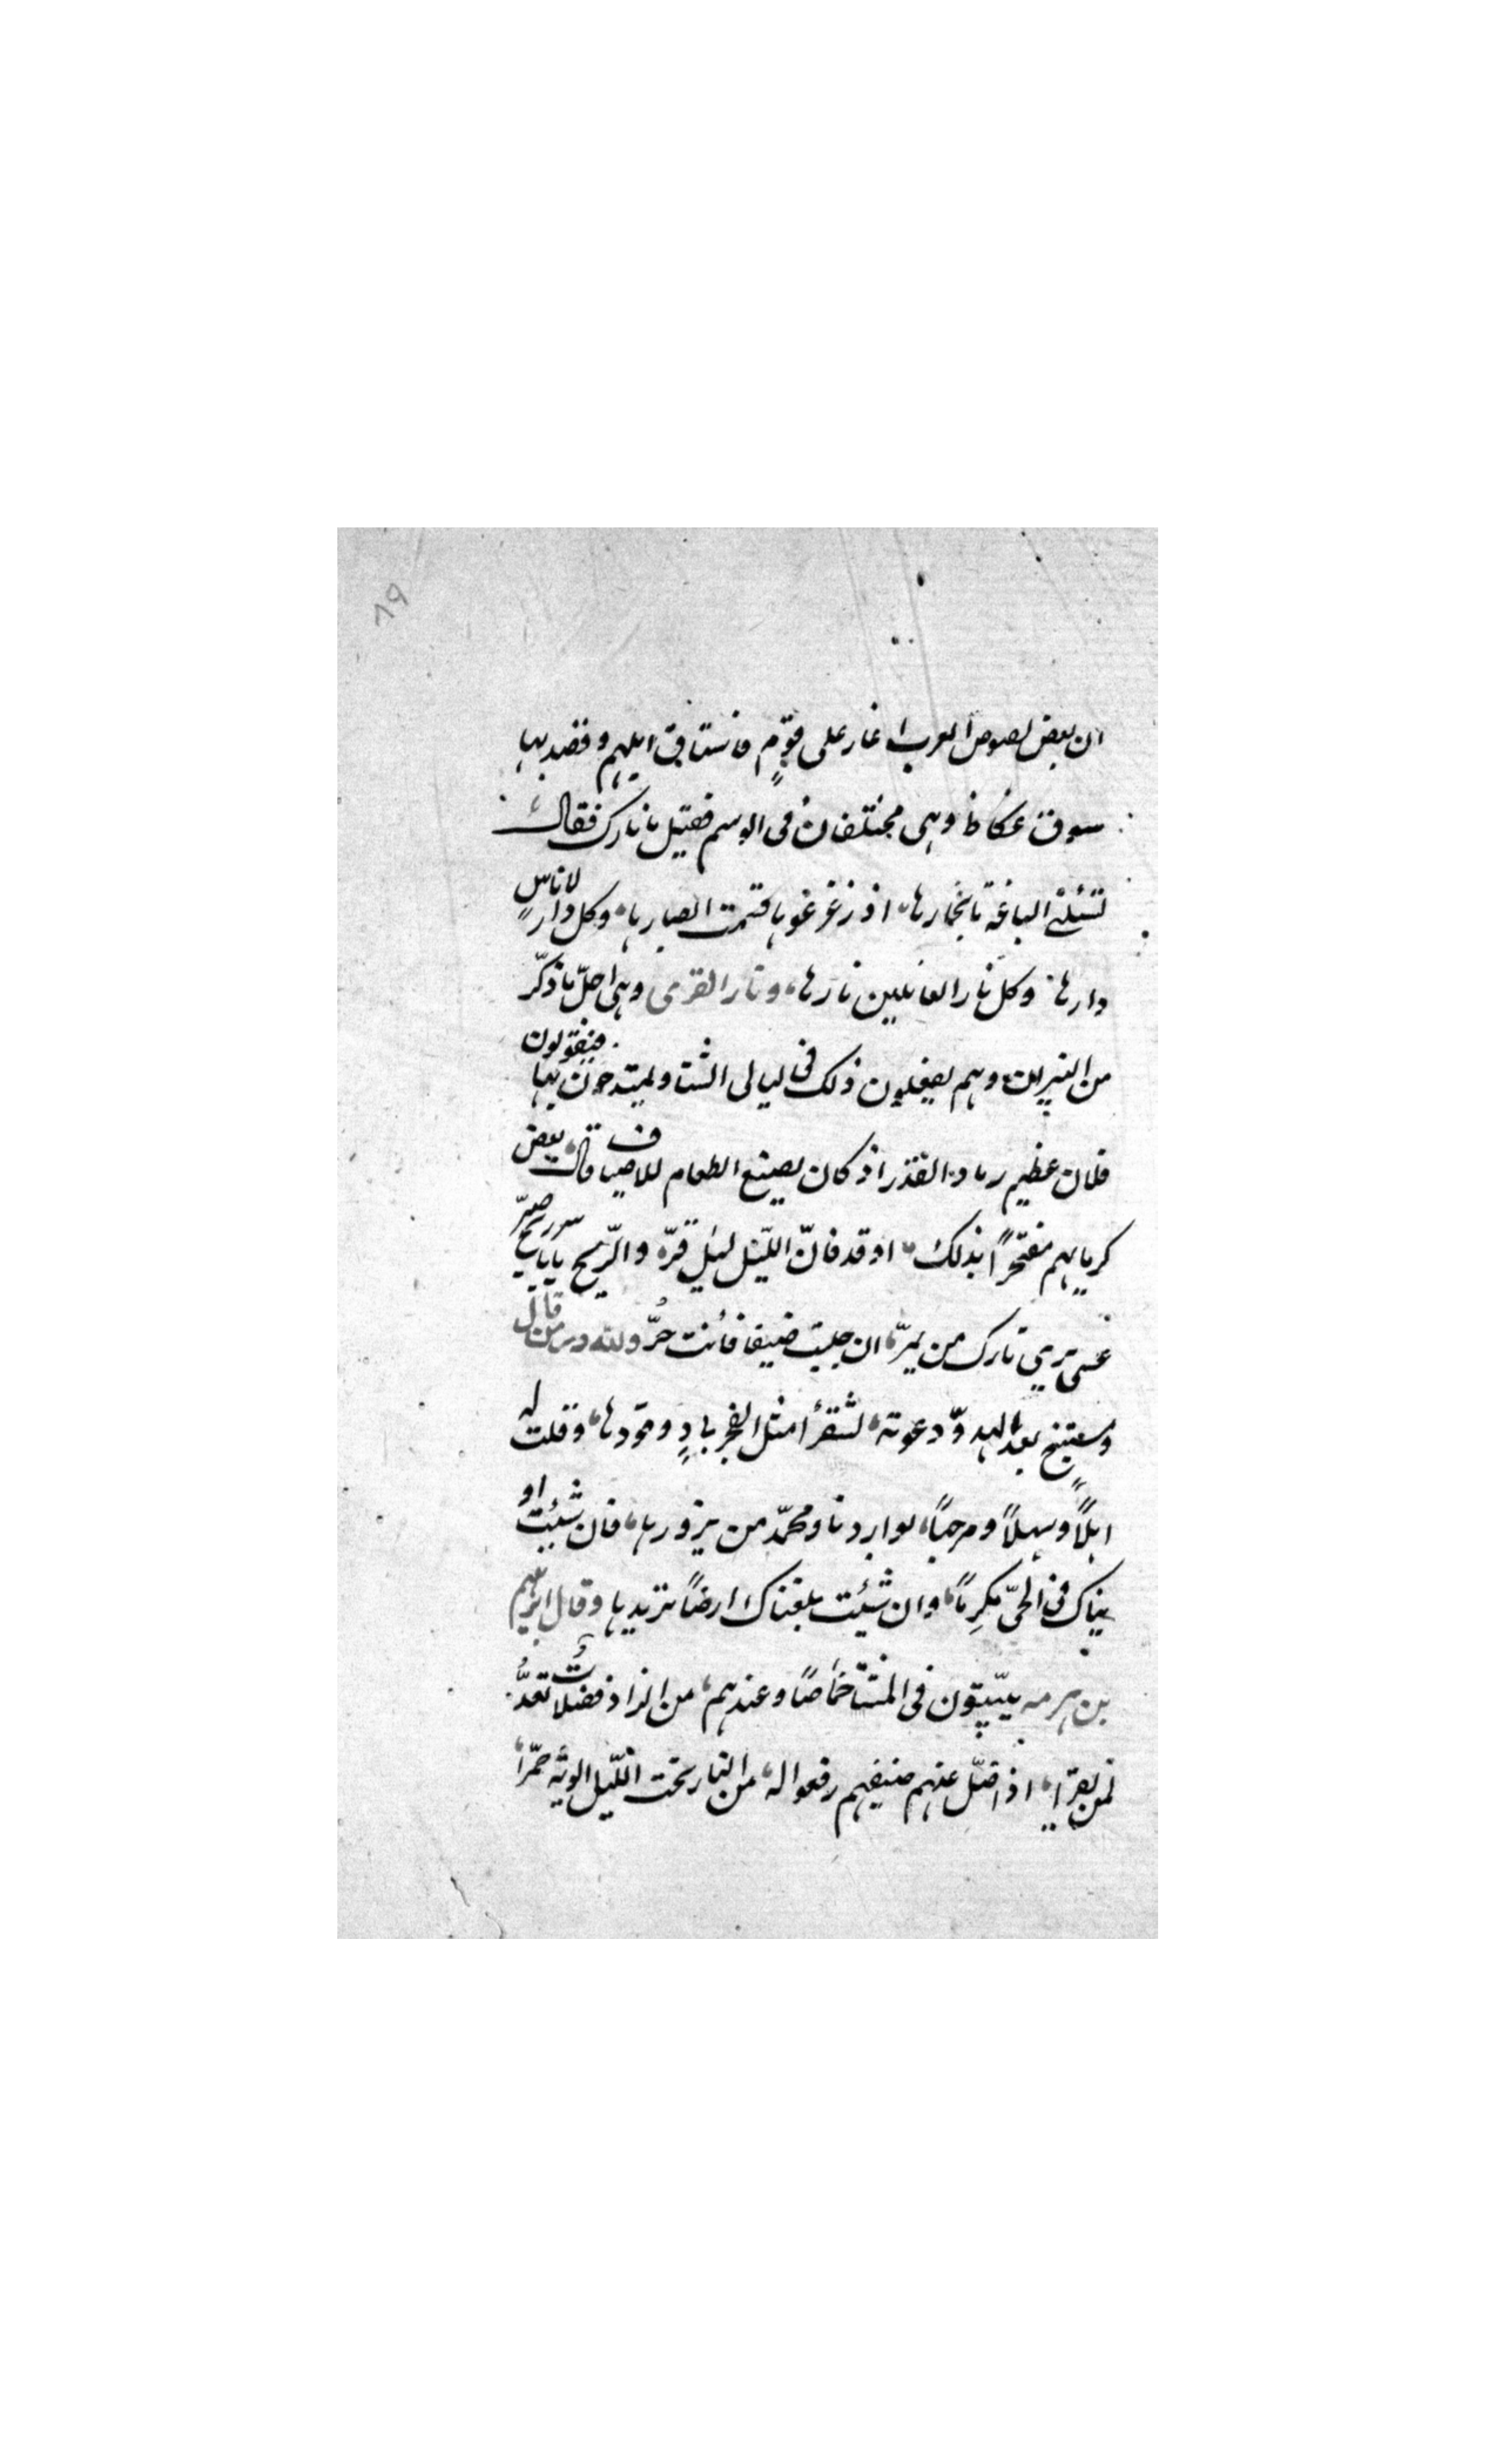 ٨٩
ان بعض لصوص العرب اغار على قومٍ فاستاق ابلهم وقصد بها
سوق عكاظ وهى مختلفان فى الوسم فقيل ما نارك فقال
تسئلنى الباعة ما نجارها، اذ زعزعوها فتمت ابصارها، وكل دار لاناسٍ
دارها، وكل نار العالمين نارها، ونار القرى وهى اجلّ ما ذكر
من النيران وهم يفعلون ذلك فى ليالى الشتا ويمتدحون بها فيقولون
فلان عظيم رماد القدر اذ كان يصنع الطعام للاضياف قال بعض
كرمايهم مفتخراً بذلك، اوقد فانّ الليل ليل قرّ، والريح يا ريح صرّ
عسى يرى نارك من يمرّ، ان جلبت ضيفا فانت حرُّ ولله در من قال
ومستنبح بعد الهدوّ دعوته، لشقرأ مثل الفجر بادٍ وقودها، وقلت له
اهلاً وسهلاً ومرحباً، لوارد نار محمّد من يزورها، فان شئت او
يناك فى الحىّ مكرماً، وان شئت بلغناك ارضاً تريدها وقال ابرهيم
بن هرمه يبيتون فى المشتا خماصًا وعندهم، من الزاد فضلاتُ تعدُّ
لمن يقرا، اذا ضلّ عنهم ضيفهم رفعوا له، من النار تحت الليل الوية حمرا